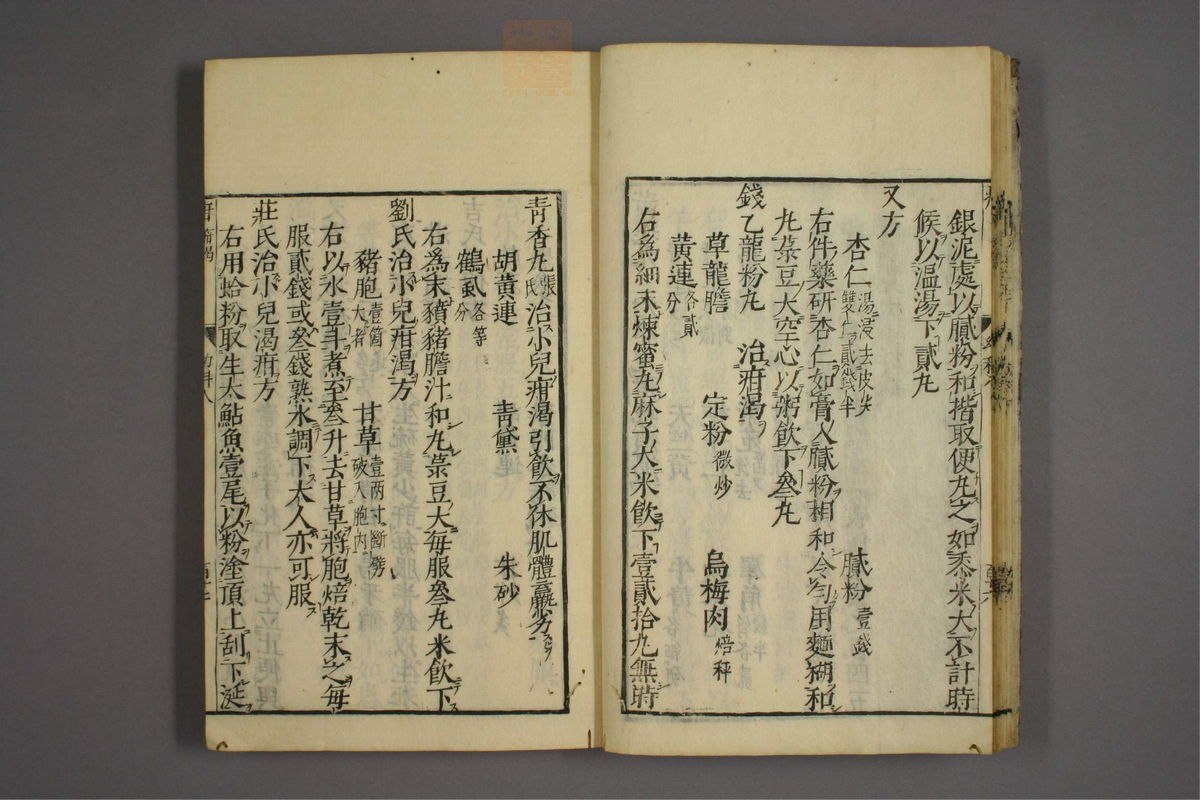 銀泥處以膩粉和揩取便丸之如黍米大不計時
候以温湯下貳丸
又方
杏仁湯浸去皮尖雙仁貳錢半 膩粉壹錢
右件藥研杏仁如膏入膩粉相和令勻用麵糊和
丸菉豆大空心以粥飲下叄丸
錢乙龍粉丸 治疳渴
草龍膽 定粉微炒 烏梅肉焙秤
黄連各貳分
右爲細末煉蜜丸麻子大米飲下壹貳拾丸無時
青香丸張氏治小兒疳渴引飲不休肌體羸劣
胡黄連 青黛 朱砂
鶴虱各等分
右爲末獖豬膽汁和丸菉豆大每服叄丸米飲下
劉氏治小兒疳渴方
豬胞壹箇大者 甘草壹两寸斷劈破入胞内
右以水壹斗煮至叄升去甘草將胞焙乾末之每
服貳錢或叄錢熟水調下大人亦可服
莊氏治小兒渴疳方
右用蛤粉取生大鮎魚壹尾以粉塗頂上刮下涎